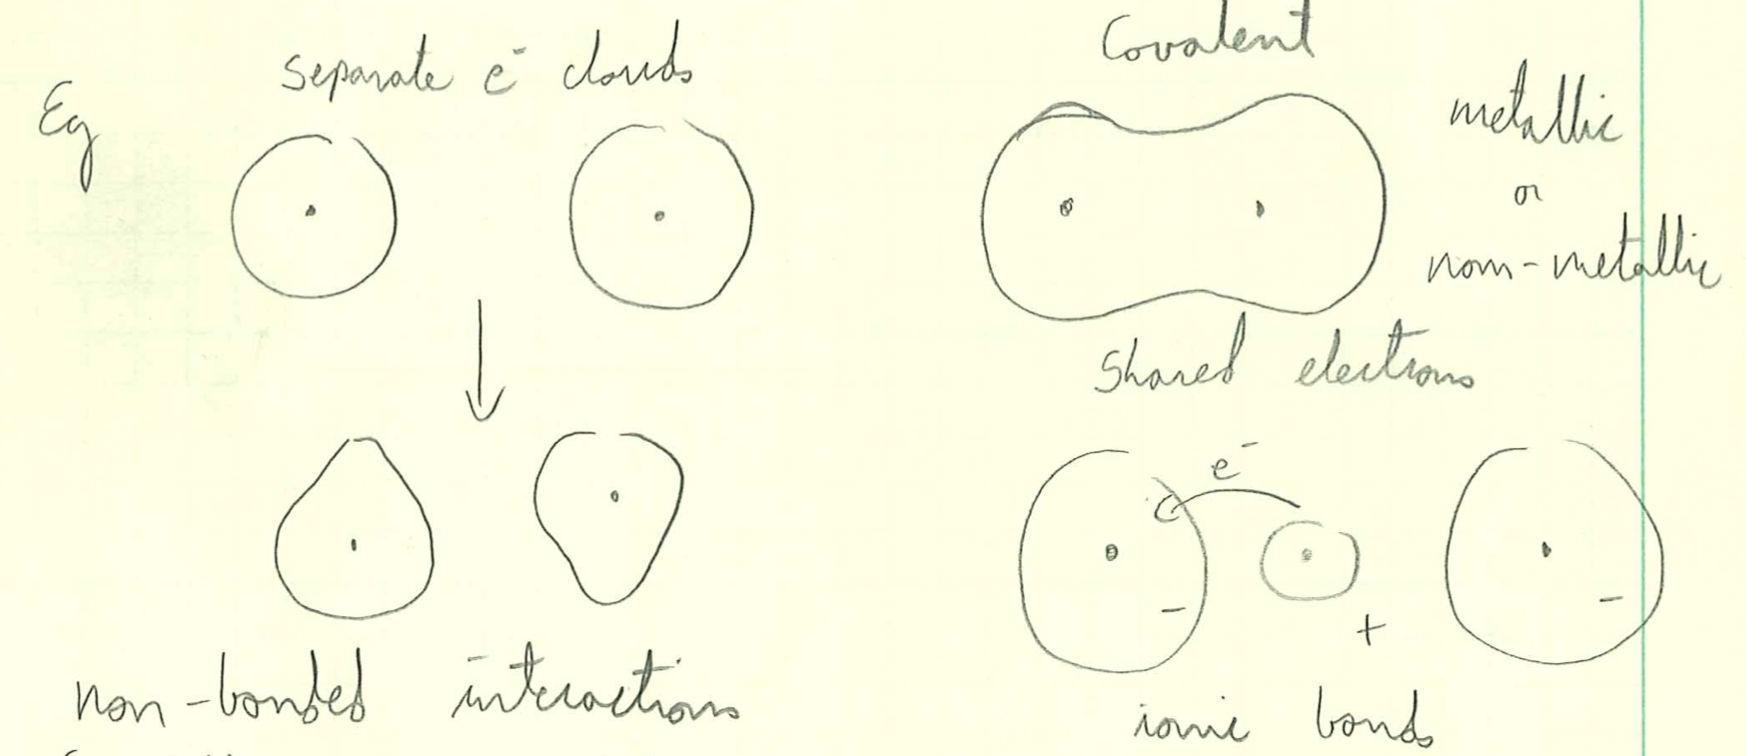 Eg
separate e⁻ clouds
non-bonded interactions
Covalent
metallic
or
non-metallic
Shared electrons
e⁻
-
+
-
ionic bonds